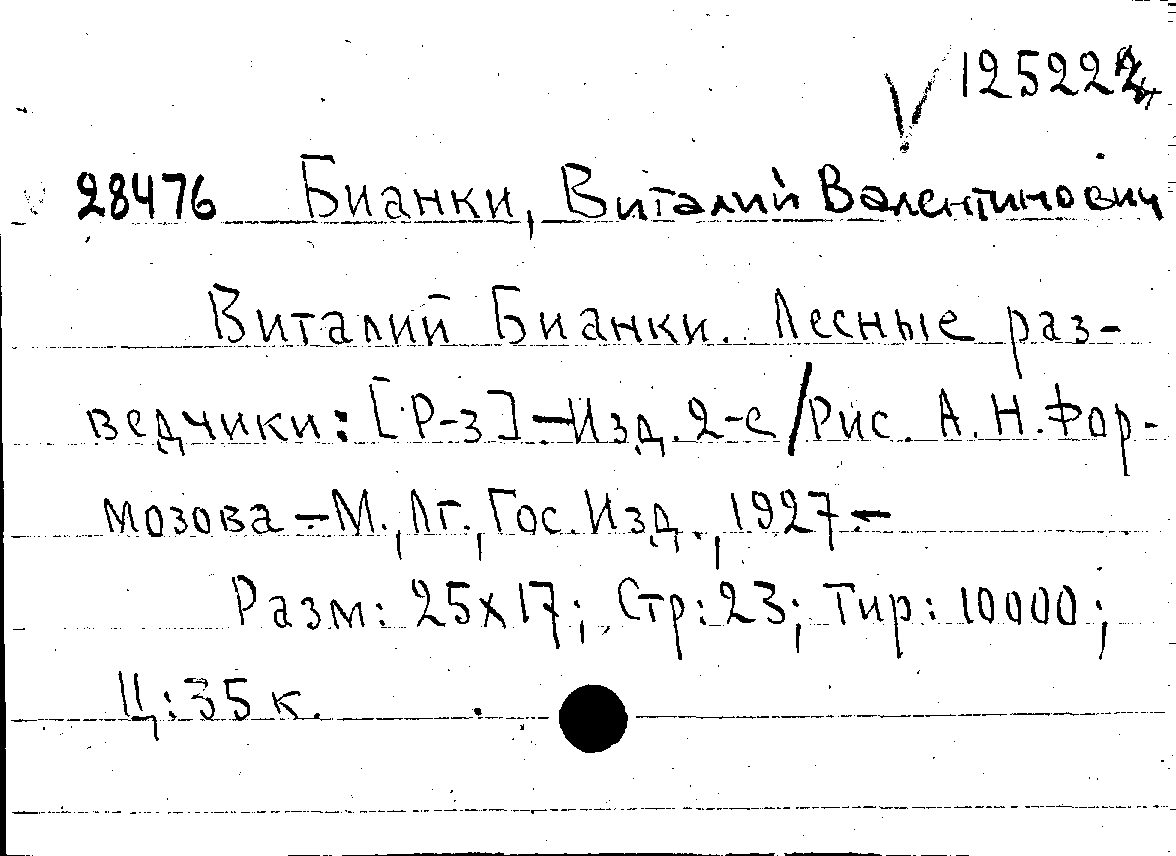 √ 125222
28476 Бианки, Виталий Валентинович
Виталий Бианки. Лесные раз-
ведчики: [Р-з] — Изд. 2-е / Рис. А. Н. Фор-
мозова — М., Лг., Гос. Изд., 1927. —
Разм: 25х17; Стр: 23; Тир: 10000;
Ц: 35 к.